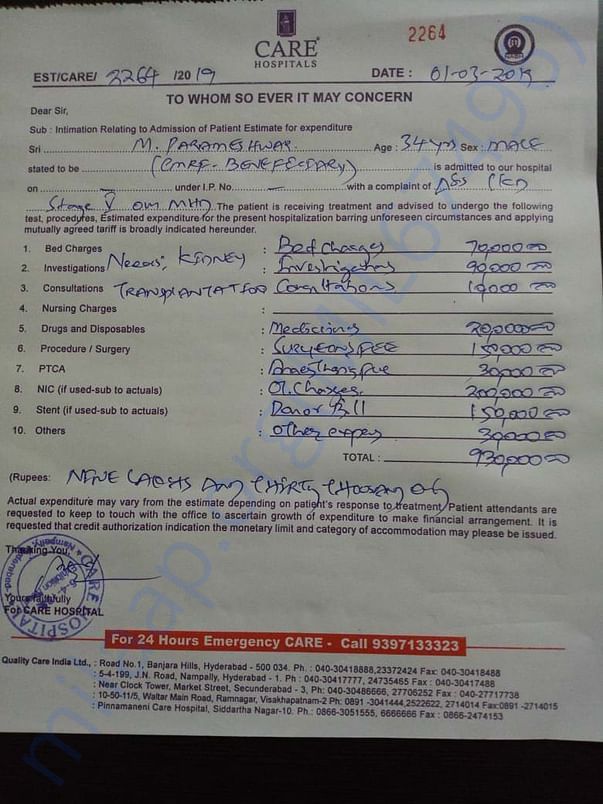 CARE
HOSPITALS
2264
EST/CARE/ 2264 /2019 DATE : 01-03-2019
TO WHOM SO EVER IT MAY CONCERN
Dear Sir,
Sub : Intimation Relating to Admission of Patient Estimate for expenditure
Sri M. PARAMESHWAR. Age : 34 yrs Sex : MALE
stated to be (CMRF - BENEFECIARY) is admitted to our hospital
on — under I.P. No. — with a complaint of CKD
Stage V ON MHD The patient is receiving treatment and advised to undergo the following
test, procedures, Estimated expenditure for the present hospitalization barring unforeseen circumstances and applying
mutually agreed tariff is broadly indicated hereunder.
1. Bed Charges : Bed charges 70,000=00
Needs; KIDNEY
2. Investigations : Investigations 90,000=00
3. Consultations TRANSPLANTATION : Consultations
4. Nursing Charges :
5. Drugs and Disposables : Medicines
6. Procedure / Surgery : SURGEONS FEE 150,000=00
7. PTCA : 30,000=00
8. NIC (if used-sub to actuals) : Ot. Charges. 200,000=00
9. Stent (if used-sub to actuals) : Donor Bill 150,000=00
10. Others : other expens 30,000=00
TOTAL : 930,000=00
(Rupees: NINE LAKHS AND THIRTY THOUSAND ONLY
Actual expenditure may vary from the estimate depending on patient's response to treatment, Patient attendants are
requested to keep to touch with the office to ascertain growth of expenditure to make financial arrangement. It is
requested that credit authorization indication the monetary limit and category of accommodation may please be issued.
Thanking You,
Yours faithfully
For CARE HOSPITAL
For 24 Hours Emergency CARE - Call 9397133323
Quality Care India Ltd., : Road No.1, Banjara Hills, Hyderabad - 500 034. Ph. : 040-30418888,23372424 Fax: 040-30418488
: 5-4-199, J.N. Road, Nampally, Hyderabad - 1. Ph : 040-30417777, 24735465 Fax : 040-30417488
: Near Clock Tower, Market Street, Secunderabad - 3, Ph: 040-30486666, 27706252 Fax : 040-27717738
: 10-50-11/5, Waltar Main Road, Ramnagar, Visakhapatnam-2 Ph: 0891 -3041444,2522622, 2714014 Fax:0891 -2714015
: Pinnamaneni Care Hospital, Siddartha Nagar-10. Ph.: 0866-3051555, 6666666 Fax : 0866-2474153